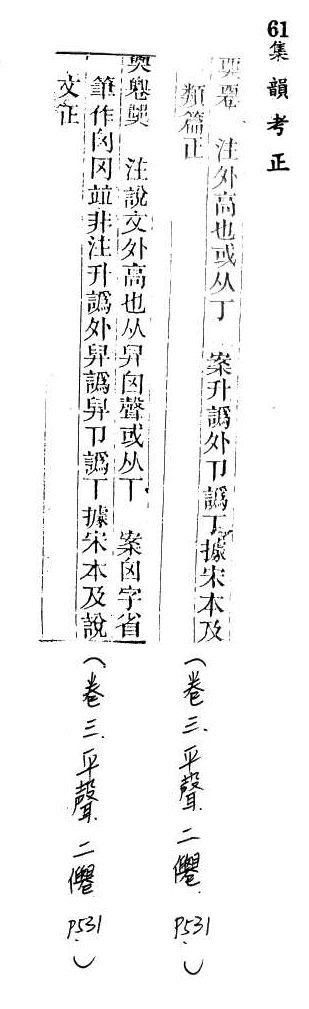 61集韻考正
注外高也或从丁 案升譌外卩譌丁據宋本及
類篇正
(卷三.平聲.二僊.P531.)
注說文外高也从舁囟聲或从丅 案囟字省
筆作囟冈竝非注升譌外舁譌卩譌丅據宋本及說
文正
(卷三.平聲.二僊.P531.)